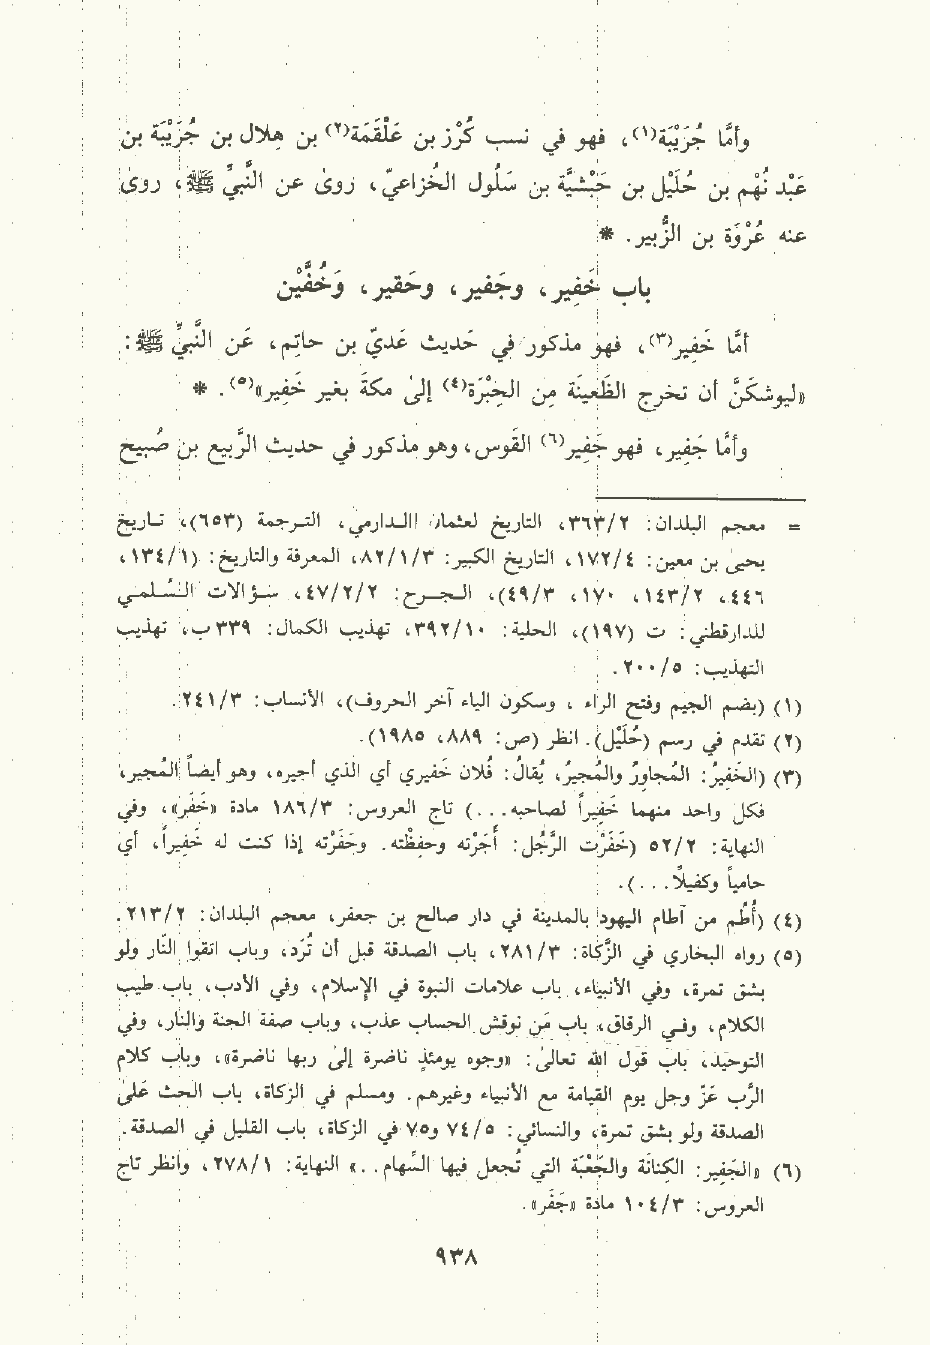 وأمَّا جُرَيْبَة(١)، فهو في نسب كُرْز بن عَلْقَمَة(٢) بن هِلال بن جُرَيْبَة بن
عَبْد نُهْم بن حُلَيْل بن حَبْشيَّة بن سَلُول الخُزاعيّ، روىٰ عن النَّبيِّ ﷺ، روىٰ
عنه عُرْوَة بن الزُّبير. *
باب خَفِير، وجَفير، وحَقير، وَخُفَّيْن
أمَّا خَفِير(٣)، فهو مذكور في حَديث عَديّ بن حاتِم، عَن النَّبيِّ ﷺ:
«ليوشكَنَّ أن تخرج الظَعينَة مِن الحِبْرَة(٤) إلىٰ مكةَ بغير خَفِير»(٥). *
وأمَّا جَفِير، فهو جَفِير(٦) القَوس، وهو مذكور في حديث الرَّبيع بن صُبيح
= معجم البلدان: ٣٦٣/٢، التاريخ لعثمان الـدارمي، التـرجمة (٦٥٣)، تـاريخ
يحيىٰ بن معين: ١٧٢/٤، التاريخ الكبير: ٨٢/١/٣، المعرفة والتاريخ: (١٣٤/١،
٤٤٦، ١٤٣/٢، ١٧٠، ٤٩/٣)، الـجـرح: ٤٧/٢/٢، سـؤالات الـسُـلـمـي
للدارقطني: ت (١٩٧)، الحلية: ٣٩٢/١٠، تهذيب الكمال: ٣٣٩ب، تهذيب
التهذيب: ٢٠٠/٥.
(١) (بضم الجيم وفتح الراء ، وسكون الياء آخر الحروف)، الأنساب: ٢٤١/٣.
(٢) تقدم في رسم (حُلَيْل). انظر (ص: ٨٨٩، ١٩٨٥).
(٣) (الخَفِيرُ: المُجاوِرُ والمُجيرُ، يُقالُ: فُلان خَفيري أي الذي أجيره، وهو أيضاً المُجير،
فكل واحد منهما خَفِيراً لصاحبه...) تاج العروس: ١٨٦/٣ مادة «خَفَر»، وفي
النهاية: ٥٢/٢ (خَفَرْت الرَّجُل: أَجَرْته وحفِظْته. وخَفَرْته إذا كنت له خَفِيراً، أي
حامياً وكفيلاً...).
(٤) (أُطُم من آطام اليهود بالمدينة في دار صالح بن جعفر، معجم البلدان: ٢١٣/٢.
(٥) رواه البخاري في الزَّكاة: ٢٨١/٣، باب الصدقة قبل أن تُرَد، وباب اتقوا النّار ولو
بشق تمرة، وفي الأنبياء، باب علامات النبوة في الإسلام، وفي الأدب، باب طيب
الكلام، وفـي الرقاق، باب مَن نوقش الحساب عذب، وباب صفة الجنة والنار، وفي
التوحيد، باب قول الله تعالىٰ: «وجوه يومئذٍ ناضرة إلىٰ ربها ناضرة»، وباب كلام
الرَّب عَزّ وجل يوم القيامة مع الأنبياء وغيرهم. ومسلم في الزكاة، باب الحث عَلىٰ
الصدقة ولو بشق تمرة، والنسائي: ٧٤/٥ و٧٥ في الزكاة، باب القليل في الصدقة.
(٦) «الجَفِير: الكِنانَة والجَعْبَة التي تُجعل فيها السِّهام..» النهاية: ٢٧٨/١، وانظر تاج
العروس: ١٠٤/٣ مادة «جَفَر».
٩٣٨